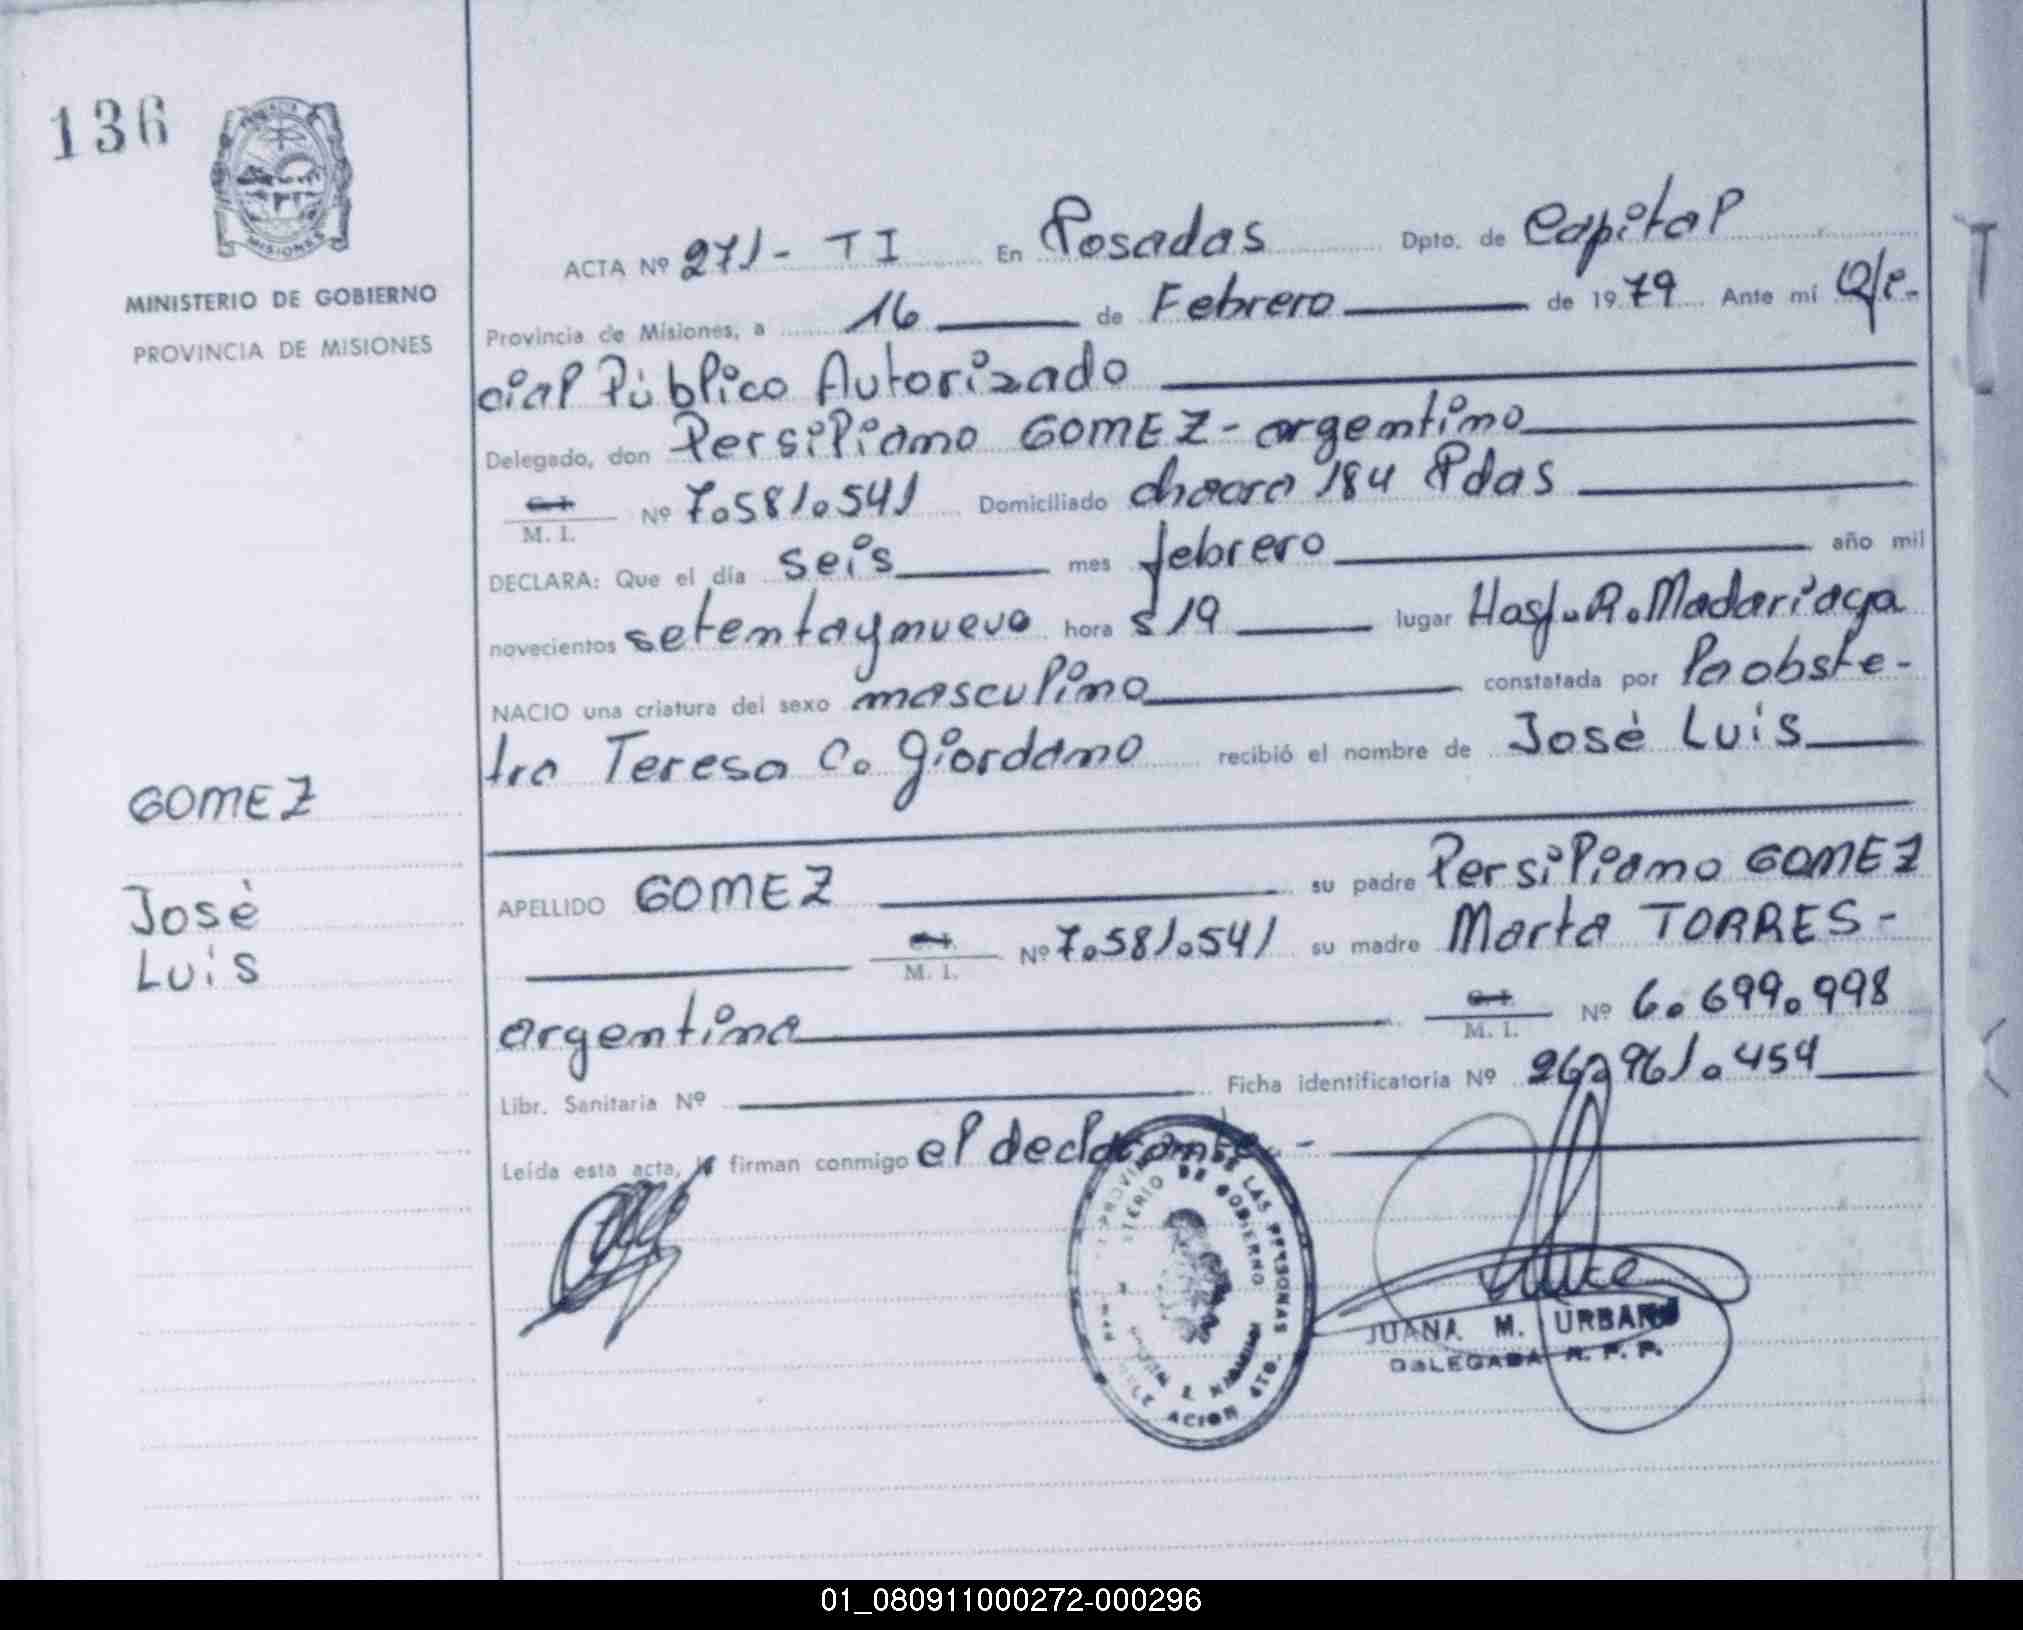 136
MINISTERIO DE GOBIERNO
PROVINCIA DE MISIONES
ACTA Nº 271 - TI En Posadas Dpto. de Capital
Provincia de Misiones, a 16 de Febrero de 1979 Ante mí Ofi-
cial Público Autorizado
Delegado, don Persiliano GOMEZ - argentino
C.I. M. I. Nº 7.581.541 Domiciliado chacra 184 Pdas
DECLARA: Que el día seis mes febrero año mil
novecientos setentaynueve hora s 19 lugar Hosp. R. Madariaga
NACIO una criatura del sexo masculino constatada por la obste-
tra Teresa C. Giordano recibió el nombre de José Luis
GOMEZ
José
Luis
APELLIDO GOMEZ su padre Persiliano GOMEZ
C.I. M. I. Nº 7.581.541 su madre Marta TORRES -
argentina C.I. M. I. Nº 6.699.998
Libr. Sanitaria Nº Ficha identificatoria Nº 26.961.454
Leída esta acta, la firman conmigo el declarante. -
JUANA M. URBAN
DELEGADA R. P. P.
01_080911000272-000296